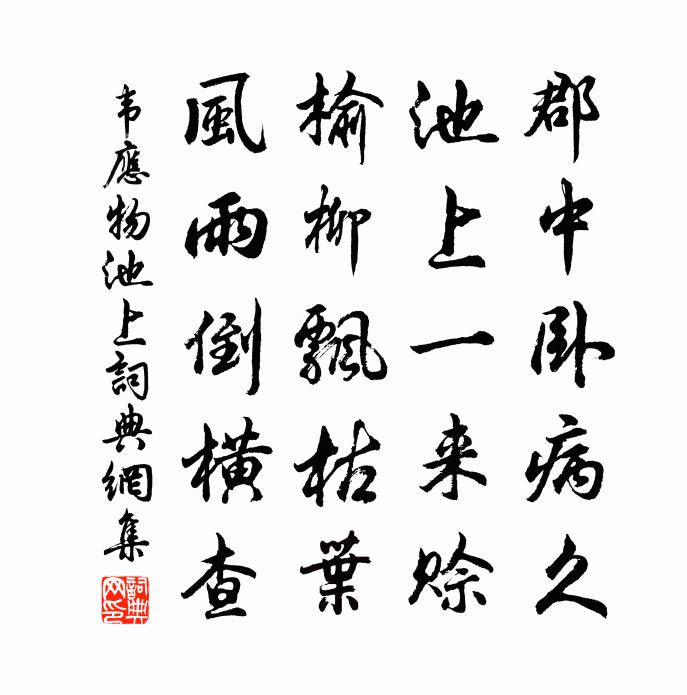 郡中卧病久
池上一来赊
榆柳飄枯葉
風雨倒橫查
韦應物池上詞典網集
詞典网印